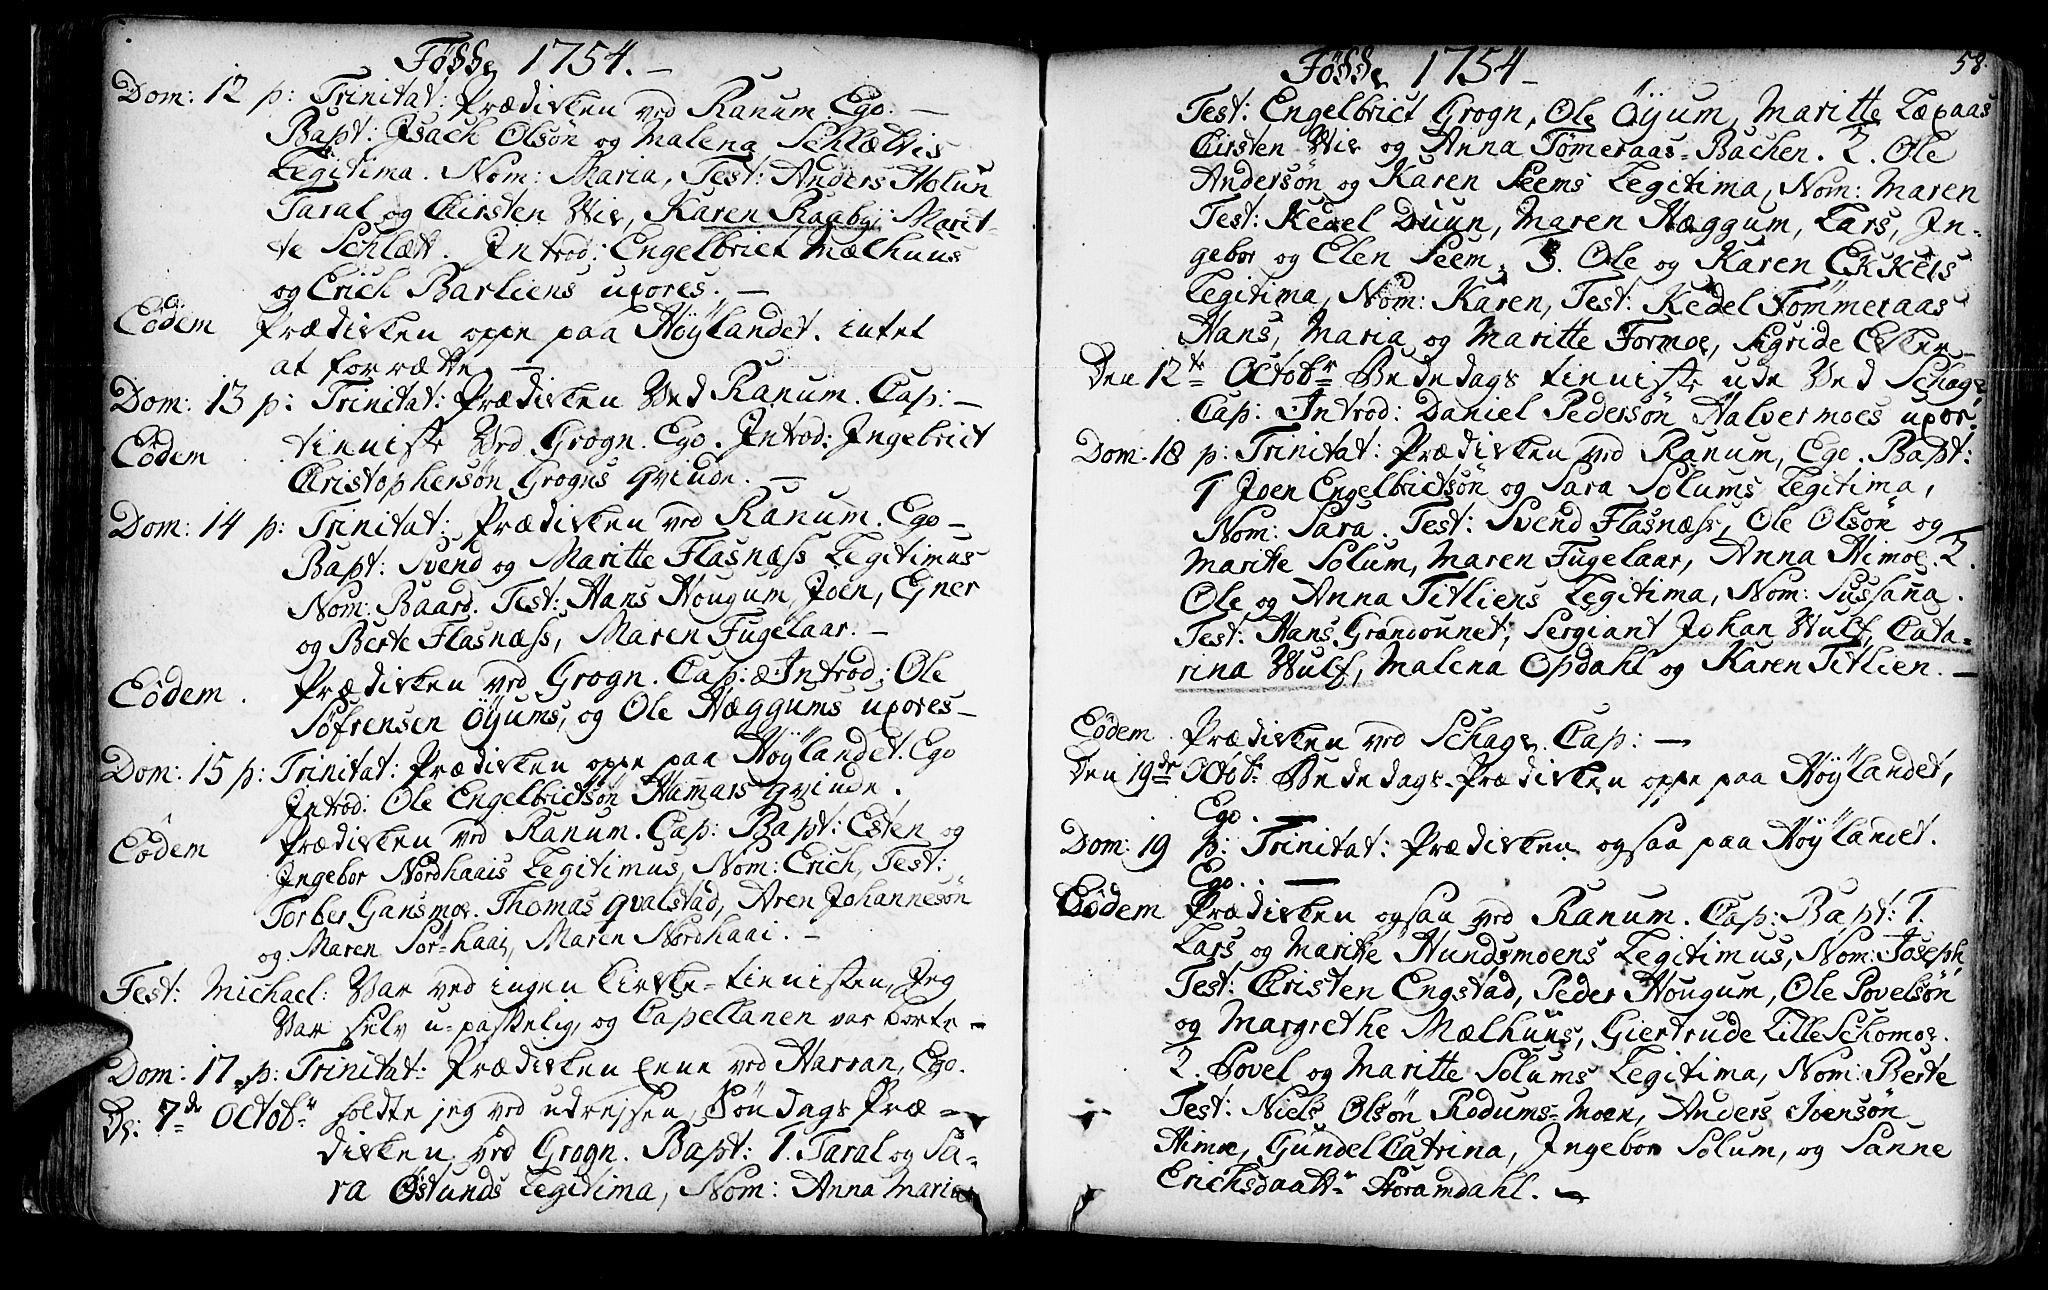 Fødde 1754.
Dom: 12 p: Trinitat: Prædiken ved Ranum. Ego.
Bapt: Isach Olsøn og Malena Schlætvis
Legitima. Nom: Maria, Test: Anders Holun
Taral og Kirsten Wie, Karen Raabye Marit-
te Schlætt. Introd: Engelbrict Mælhuus
og Erich Barliens uxores.
Eôdem Prædiken oppe paa Høylandet. intet
at forrætte
Dom: 13 p: Trinitat: Prædiken Ved Ranum. Cap:
Eôdem tienniste Ved Grogn. Ego. Introd: Ingebrict
Christophersøn Grogns qvinde.
Dom: 14 p: Trinitat: Prædiken ved Ranum. Ego
Bapt: Svend og Maritte Flasnæss Legitimus
Nom: Baard. Test: Hans Hougum, Joen, Ejner
og Berte Flasnæss, Maren Fugelaar.
Eôdem. Prædiken ved Grogn. Cap: & Introd: Ole
Søfrensen Öyums, og Ole Hæggums uxores
Dom: 15 p: Trinitat: Prædiken oppe paa Høylandet. Ego
Introd: Ole Engelbrictsøn Ham̅ars qvinde.
Eôdem Prædiken ved Ranum. Cap: Bapt: Esten og
Ingebor Nordhaais Legitimus, Nom: Erich, Test:
Torber Gansmoe. Thomas qvalstad, Aren Johannesøn
og Maren Sor-haai, Maren Nordhaai.
Fest: Michael: Var ved ingen kirke-tiennisten, Jeg
Var selv u-passelig, og Capellanen var borte
Dom: 17 p: Trinitat: Prædiken Eene ved Harran, Ego.
D: 7de Octobr holdte jeg ved udrejsen, Søndags Præ-
diken ved Grogn. Bapt: 1. Taral og Sa-
ra Østunds Legitima, Nom: Anna Maria
Fødde 1754
58
Test: Engelbrict Grogn, Ole Öyum, Maritte Læpaas
Kirsten Wie og Anna Tømeraas-Bachen. 2. Ole
Andersøn og Karen Seems Legitima, Nom: Maren
Test: Kedel Duun, Maren Hæggum, Lars, In-
gebor og Elen Seem. 3. Ole og Karen Ekkers
Legitima, Nom: Karen, Test: Kedel Tømmeraas
Hans, Maria og Maritte Formoe, Sigride Ekker
Den 12te Octobr Bededags tienniste ude Ved Schage,
Cap: Introd: Daniel Pedersøn Halvermoes uxor.
Dom: 18 p: Trinitat: Prædiken ved Ranum, Ego. Bapt:
1 Joen Engelbrictsøn og Sara Solums Legitima,
Nom: Sara. Test: Svend Flasnæss, Ole Olsøn og
Maritte Solum, Maren Fugelaar, Anna Himoe. 2.
Ole og Anna Titliens Legitima, Nom: Sussan̅a.
Test: Hans Grandounet, Sergiant Johan Wulf, Cata-
rina Wulf, Malena Opdahl og Karen Titlien.
Eôdem. Prædiken ved Schage. Cap:
Den 19de Octobr Bededags-Prædiken oppe paa Høylandet,
Ego.
Dom: 19 p: Trinitat: Prædiken ogsaa paa Høylandet.
Ego.
Eôdem Prædiken ogsaa ved Ranum. Cap: Bapt: 1.
Lars og Maritte Hundsmoens Legitimus, Nom: Joseph
Test: Kristen Engstad, Peder Hougum, Ole Povelsøn
og Margrethe Mælhuus, Giertrude Lille Schomoe.
2. Povel og Maritte Solums Legitima, Nom: Berte
Test: Niels Olsøn Rodums-Moen, Anders Joensøn
Himoe, Gundel Catrina, Ingebor Solum, og Sanne
Erichsdaattr Storamdahl.